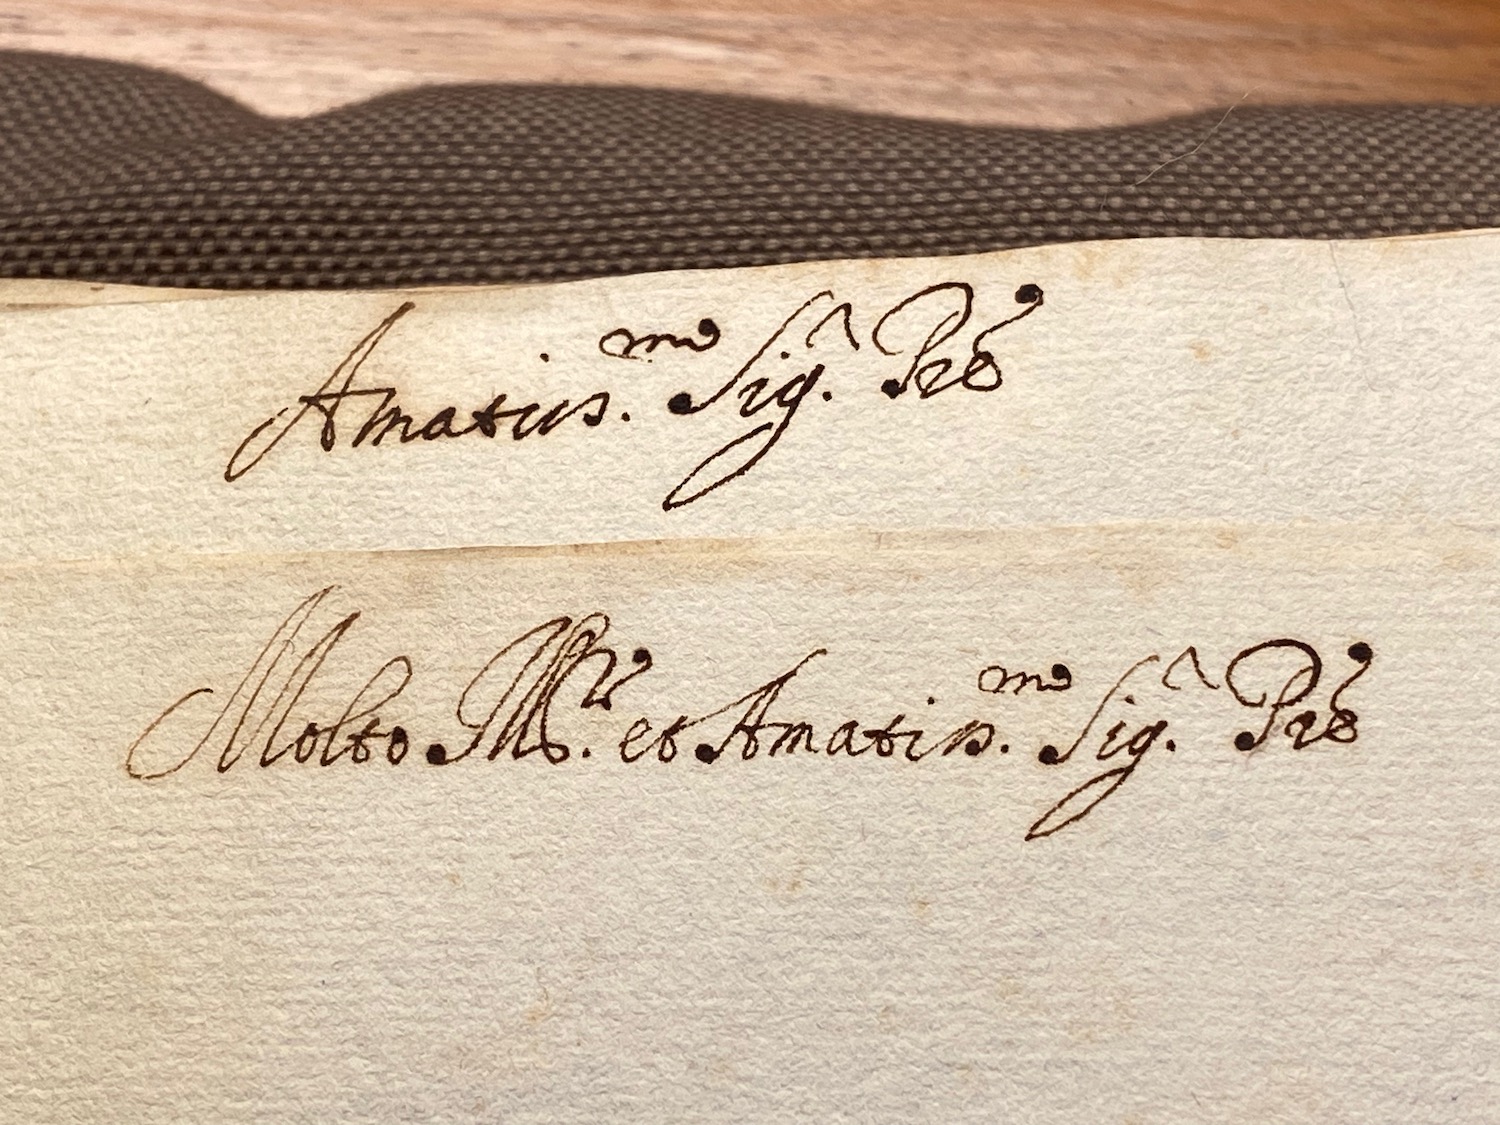 Amatiss.mo Sig.r Pre
Molto Ill.re et Amatiss.mo Sig.r Pre